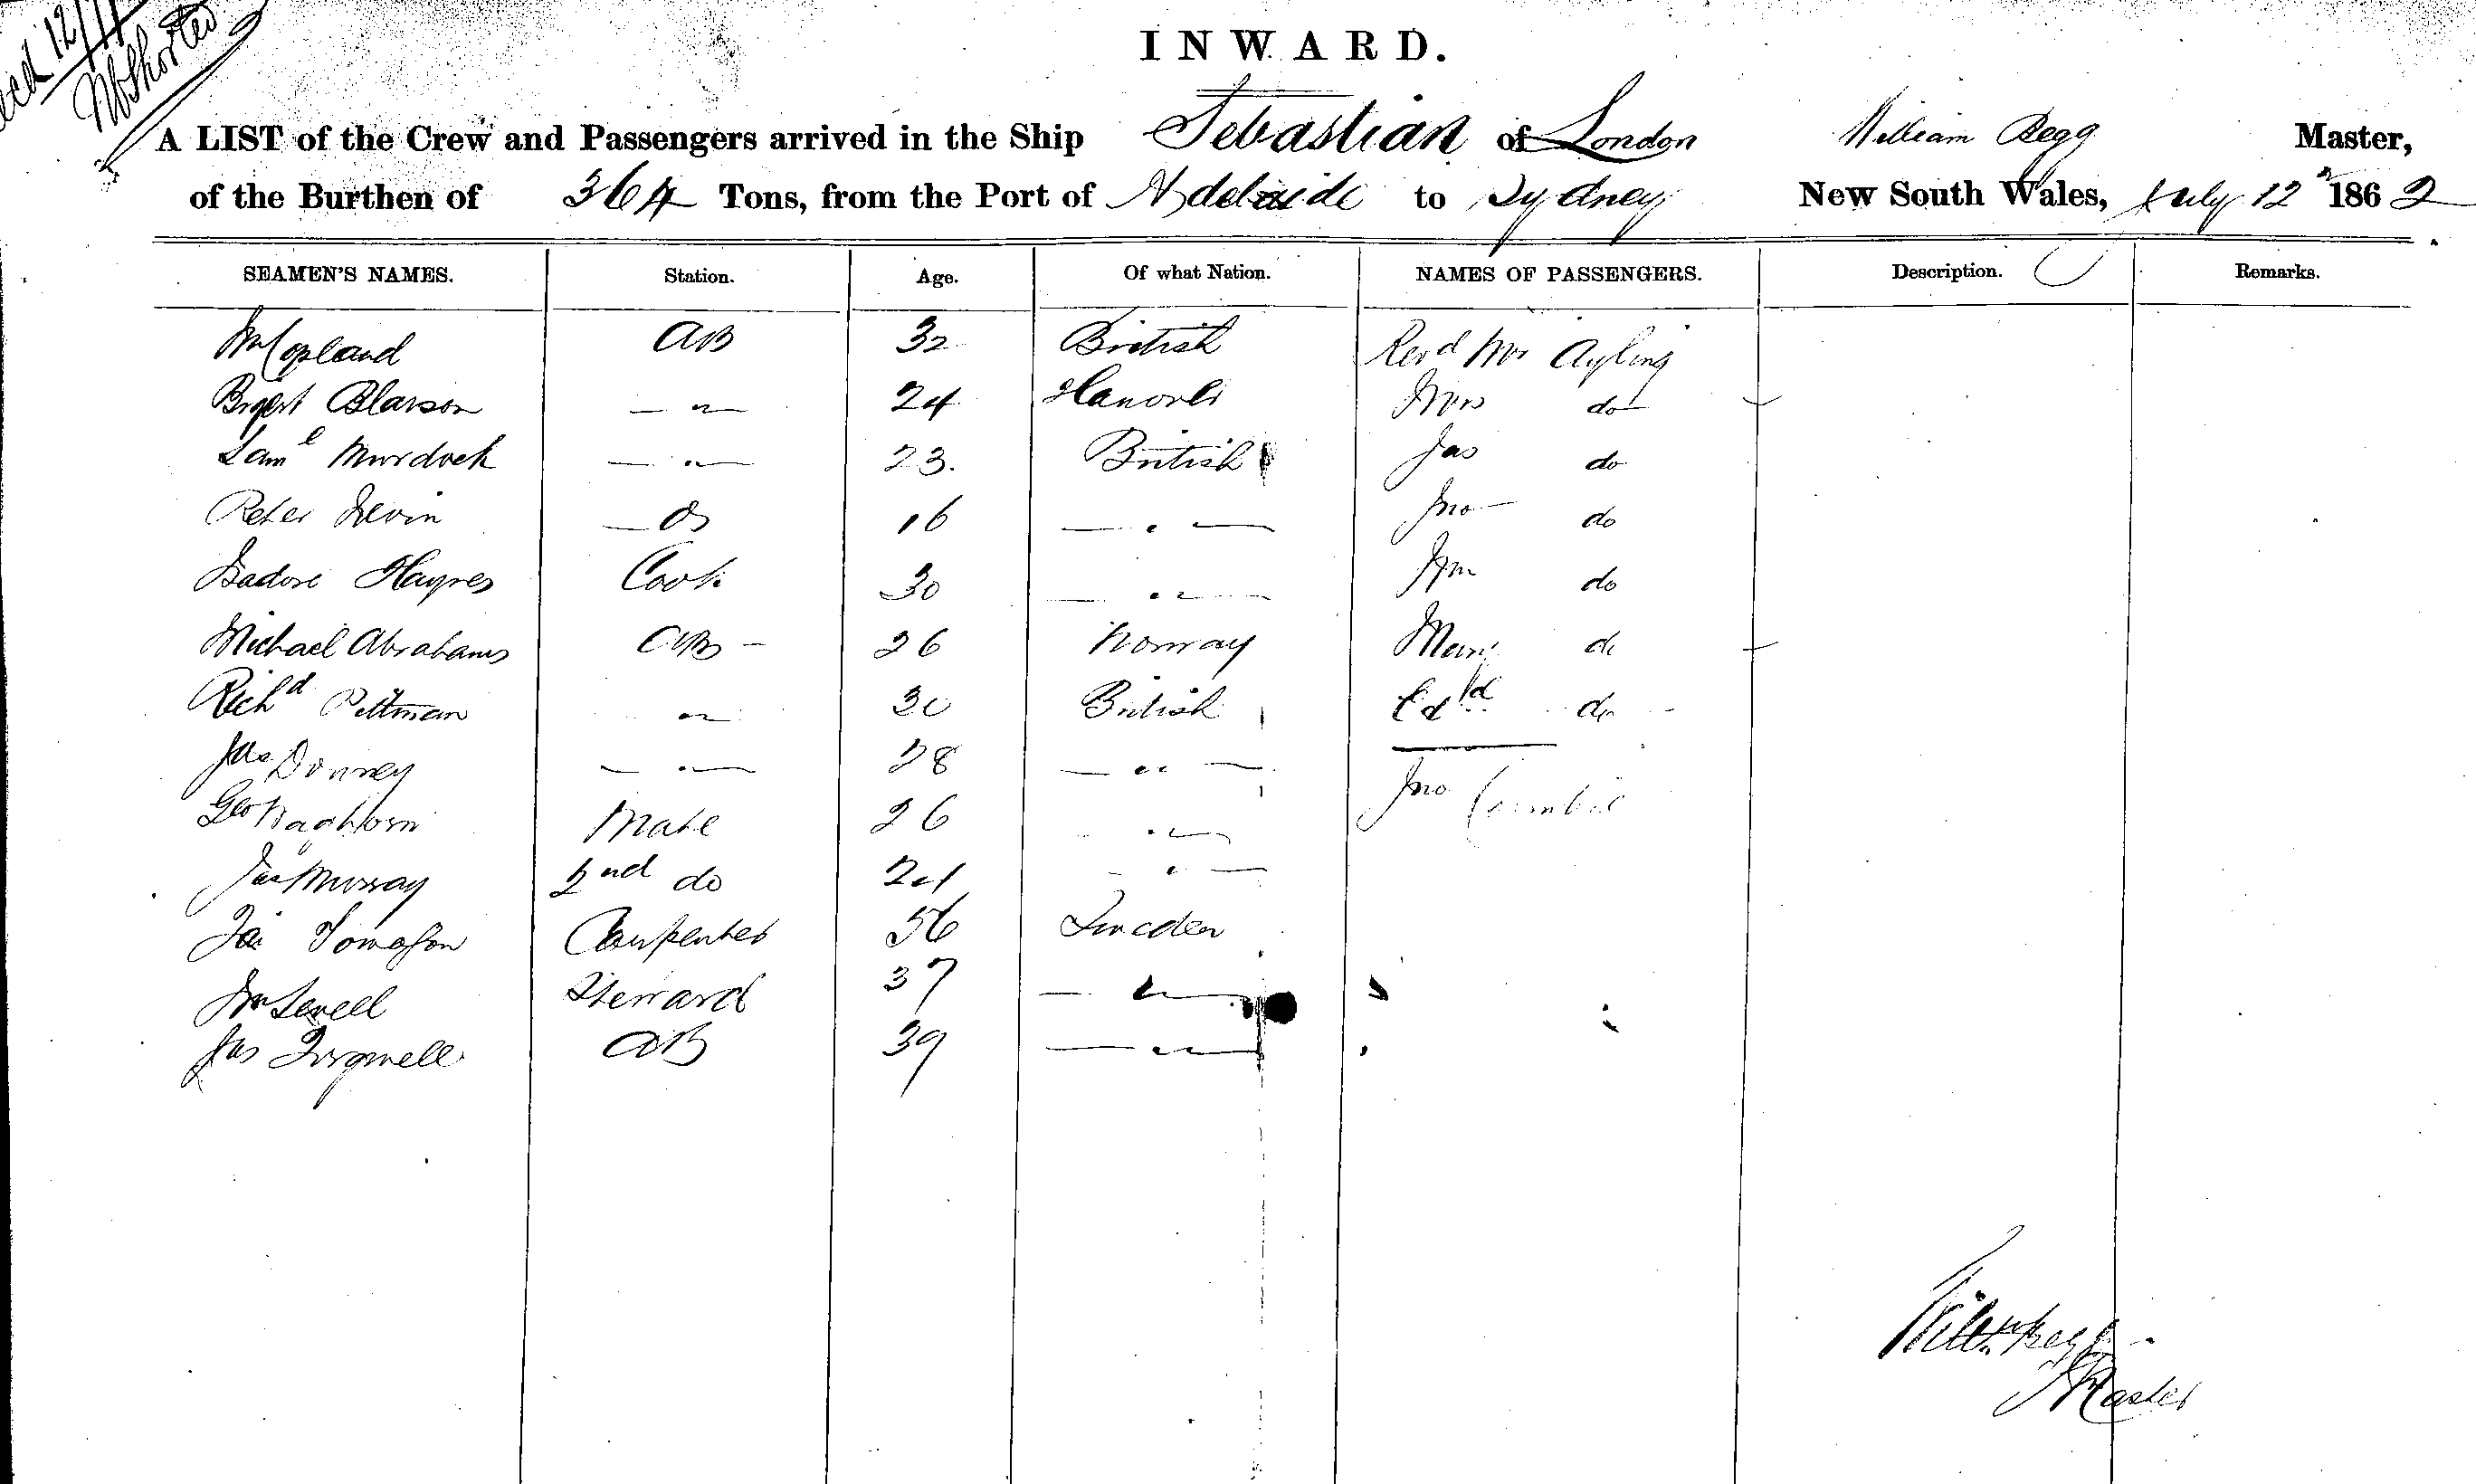 12/7
INWARD.
A LIST of the Crew and Passengers arrived in the Ship Sebastian of London William Begg Master,
of the Burthen of 364 Tons, from the Port of Adelaide to Sydney New South Wales, July 12 1862
SEAMEN'S NAMES. Station. Age. Of what Nation. NAMES OF PASSENGERS. Description. Remarks.
Wm Copland AB 32 British Revd Mr Ayling
Blarson — " — 24 Hanover Mrs do
Saml Murdock — " — 23. British Jas do
Peter — Os 16 — " — Jno do
Isadore Haynes Cook 30 — " — Wm do
Michael Abrahams AB - 26 Norway do
Richd Pittman " 30 British Edwd do
Jas Donney — " — 28 — " — Jno
Geo Waghorn Mate 26 " —
Jas Murray 2nd do 21 - " —
Carpenter 56 Sweden
Wm Steward 37 — " —
Jas AB 39 — " —
Willm Begg
Master